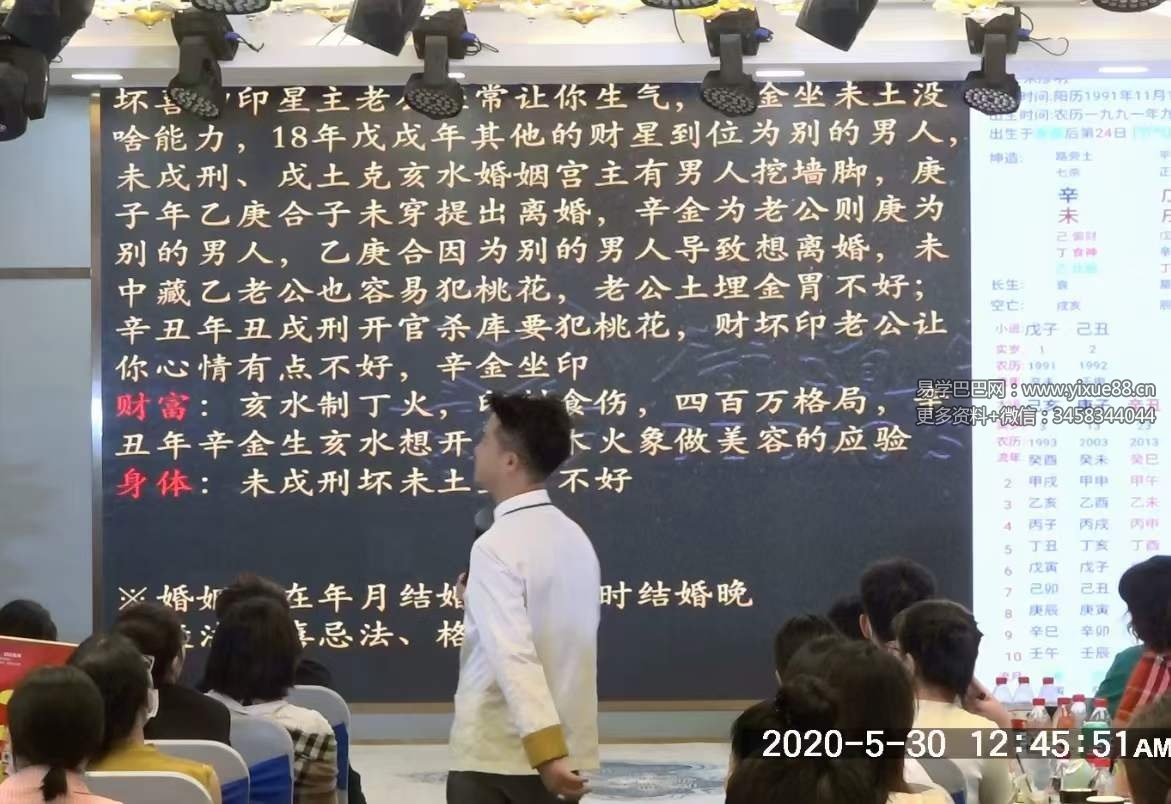 坏喜 印星主老 常让你生气， 金坐未土没
啥能力，18年戊戌年其他的财星到位为别的男人，
未戌刑、戌土克亥水婚姻宫主有男人挖墙脚，庚
子年乙庚合子未穿提出离婚，辛金为老公则庚为
别的男人，乙庚合因为别的男人导致想离婚，未
中藏乙老公也容易犯桃花，老公土埋金胃不好；
辛丑年丑戌刑开官杀库要犯桃花，财坏印老公让
你心情有点不好，辛金坐印
财富：亥水制丁火， 食伤，四百万格局，
丑年辛金生亥水想开 木火象做美容的应验
身体：未戌刑坏未土 不好
※婚姻 在年月结婚 时结婚晚
法、格
时间:阳历1991年11月1
出生时间:农历一九九一年九
出生于 后第24日
坤造: 路旁土 平
七杀 正
辛
未
己 偏财
丁 食神
长生: 衰 墓
空亡: 戌亥 辰
小运: 戊子 己丑
实岁: 1 2
农历: 1991 1992
庚子 辛丑
农历: 1993 2003 2013
流年 癸酉 癸未 癸巳
2 甲戌 甲申 甲午
3 乙亥 乙酉 乙未
4 丙子 丙戌 丙申
5 丁丑 丁亥 丁酉
6 戊寅 戊子
7 己卯 己丑
8 庚辰 庚寅
9 辛巳 辛卯
10 壬午 壬辰
易学巴巴网：www.yixue88.cn
更多资料+微信：3458344044
2020-5-30 12:45:51AM